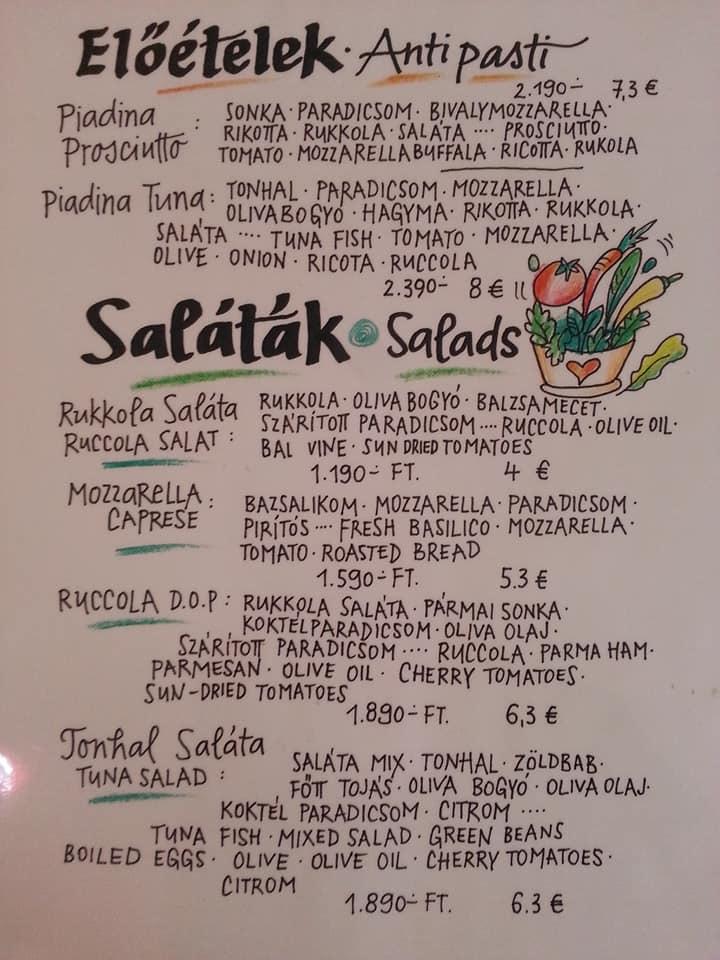 Előételek · Antipasti
2.190.- 7,3 €
Piadina Prosciutto : SONKA · PARADICSOM · BIVALYMOZZARELLA ·
RIKOTTA · RUKKOLA · SALÁTA ···· PROSCIUTTO ·
TOMATO · MOZZARELLA BUFFALA · RICOTTA · RUKOLA
Piadina Tuna : TONHAL · PARADICSOM · MOZZARELLA ·
OLIVABOGYÓ · HAGYMA · RIKOTTA · RUKKOLA ·
SALÁTA ···· TUNA FISH · TOMATO · MOZZARELLA ·
OLIVE · ONION · RICOTA · RUCCOLA
2.390.- 8 €
Saláták · Salads
Rukkola Saláta
RUCCOLA SALAT :
RUKKOLA · OLIVA BOGYÓ · BALZSAMECET ·
SZÁRÍTOTT PARADICSOM ···· RUCCOLA · OLIVE OIL ·
BAL VINE · SUN DRIED TOMATOES
1.190.- FT. 4 €
MOZZARELLA CAPRESE :
BAZSALIKOM · MOZZARELLA · PARADICSOM ·
PIRÍTÓS ···· FRESH BASILICO · MOZZARELLA ·
TOMATO · ROASTED BREAD
1.590.- FT. 5.3 €
RUCCOLA D.O.P : RUKKOLA SALÁTA · PÁRMAI SONKA ·
KOKTÉLPARADICSOM · OLIVA OLAJ ·
SZÁRÍTOTT PARADICSOM ···· RUCCOLA · PARMA HAM ·
PARMESAN · OLIVE OIL · CHERRY TOMATOES ·
SUN-DRIED TOMATOES
1.890.- FT. 6,3 €
Tonhal Saláta
TUNA SALAD :
SALÁTA MIX · TONHAL · ZÖLDBAB ·
FŐTT TOJÁS · OLIVA BOGYÓ · OLIVA OLAJ ·
KOKTÉL PARADICSOM · CITROM ····
TUNA FISH · MIXED SALAD · GREEN BEANS
BOILED EGGS · OLIVE · OLIVE OIL · CHERRY TOMATOES ·
CITROM
1.890.- FT. 6.3 €